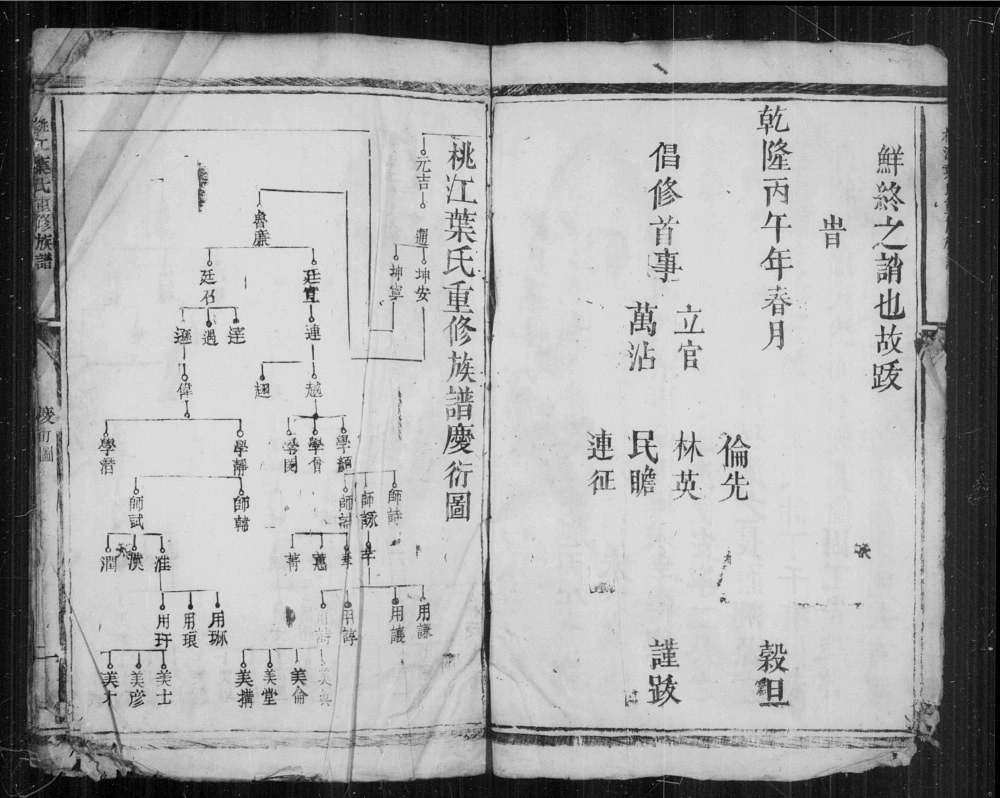 鮮終之誚也故跋
旹
乾隆丙午年春月
穀旦
倡修首事
立官
萬沾
倫先
林英
民瞻
連征
謹跋
桃江葉氏重修族譜慶衍圖
元吉
迵
坤安
坤寧
魯廉
廷宣
廷召
連
達
過
遜
越
超
偉
學顏
學曾
學閔
學靜
學潛
師詩
師詠
師韓
師試
幸
蕙
淮
漢
潤
用謙
用議
用諄
用詩
用琢
用琅
用玗
美典
美倫
美堂
美搆
美士
美彦
美才
葉氏重修族譜
慶衍圖
一